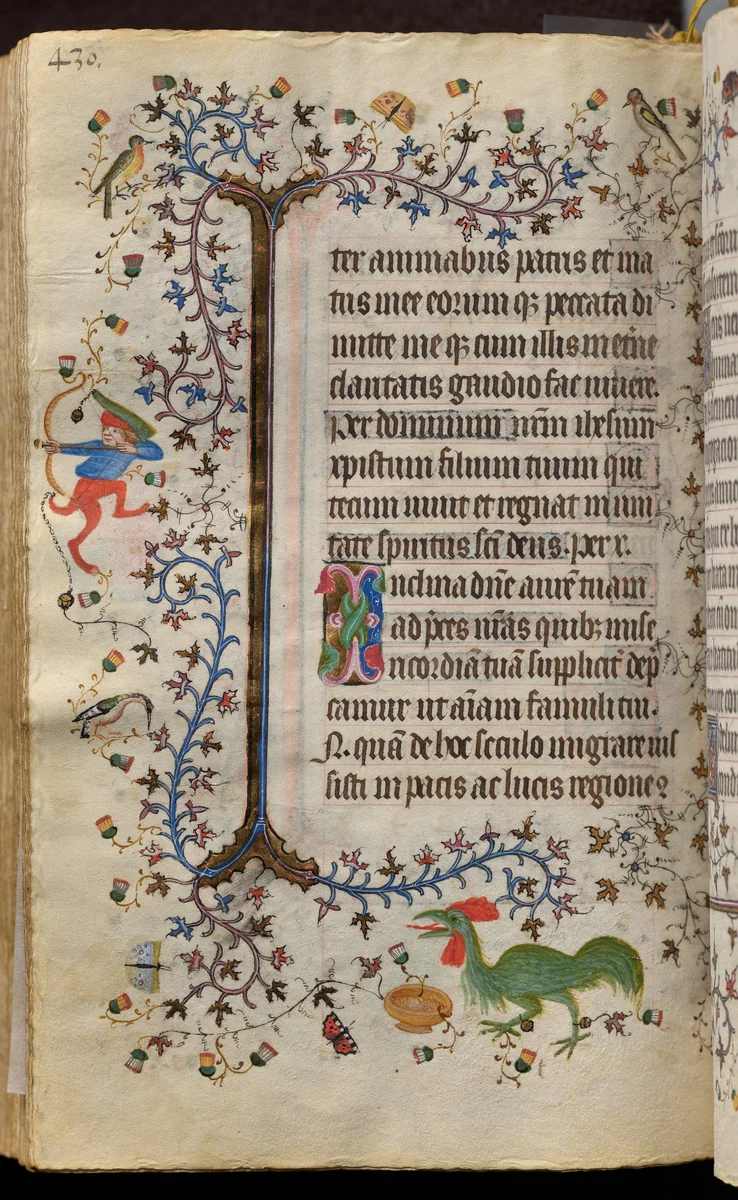 430.
ter animabus patris et ma
tris mee eorum qȝ peccata di
mitte me qȝ cum illis in et̄ne
claritatis gaudio fac uiuere.
Per dominum nr̄m ihesum
xpistum filium tuum qui
tecum uiuit et regnat in uni
tate spiritus sc̄i deus. per x.
Inclina dn̄e aurē tuam
ad p̄ces nr̄as quibȝ mise
ricordiā tuā supplicit̄ dep̄
camur ut aīam famuli tui.
N. quā de hoc seculo migrare ius
sisti in pacis ac lucis regione